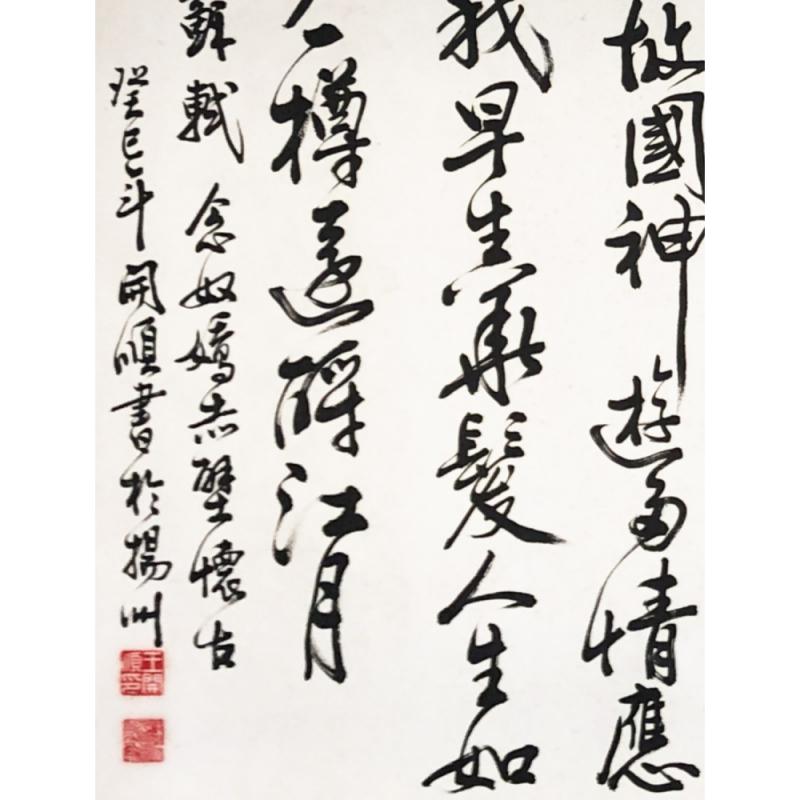 故國神遊多情應
我早生華髮人生如
一樽還酹江月
蘇軾 念奴嬌赤壁懷古
癸巳年開順書於揚州
王開順印